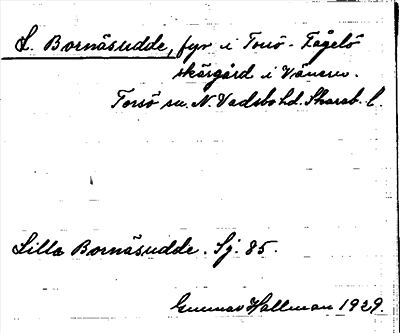 L. Bornäsudde, fyr i Torsö - Fågelö
skärgård i Vänern.
Torsö sn. N. Vadsbo hd. Skarab. l.
Lilla Bornäsudde. Sj. 85.
Gunnar Hallman 1929.